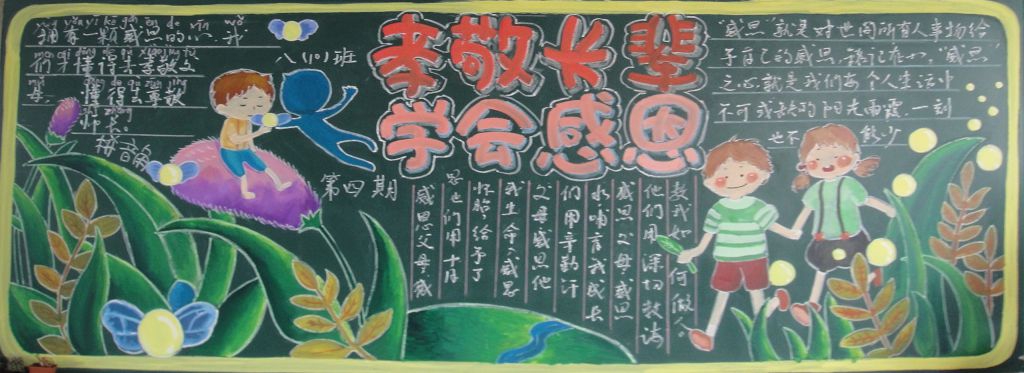 yōng yǒu yī kē gǎn ēn de xīn wǒ
拥有一颗感恩的心,我
men cái dǒng de qù xiào jìng fù
们才懂得去孝敬父
mǔ dǒng de qù zūn jìng
母,懂得去尊敬
shī zhǎng
师长。
拼音角
八(10)班
孝敬长辈
学会感恩
第四期
“感恩”就是对世间所有人事物给
予自己的感恩,铭记在心。“感恩”
之心就是我们每个人生活中
不可或缺的阳光雨露,一刻
也不能少
感恩父母,感
恩他们用十月
怀胎给予了
我生命,感恩
父母感恩他
们用辛勤汗
水哺育我成长
感恩父母感恩
他们用深切教诲
教我如何做人。